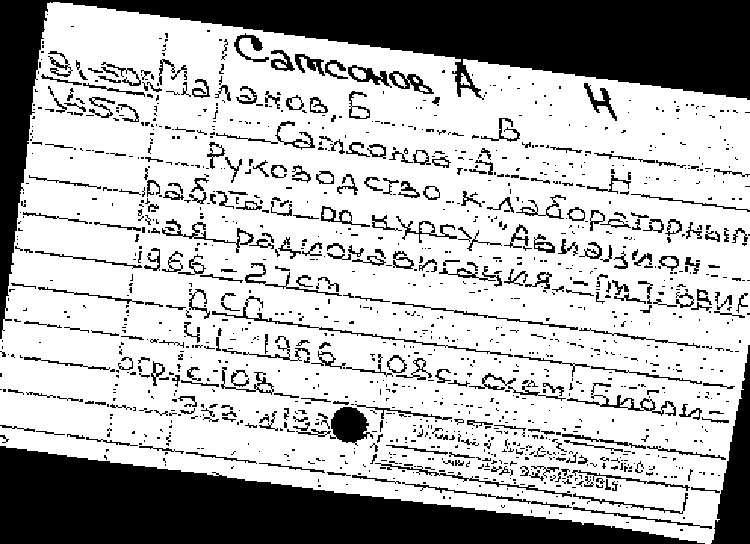 Самсонов, А Н
31-50
1450
Маланов, Б В
Самсонов, А Н
Руководство к лабораторным
работам по курсу "Авиацион-
ная радионавигация. - [М]: ВВИА
1966 - 27cm
ДСП
Ч.1 1966. 108с. схем Библи-
огр.: с. 108
Экз. №193